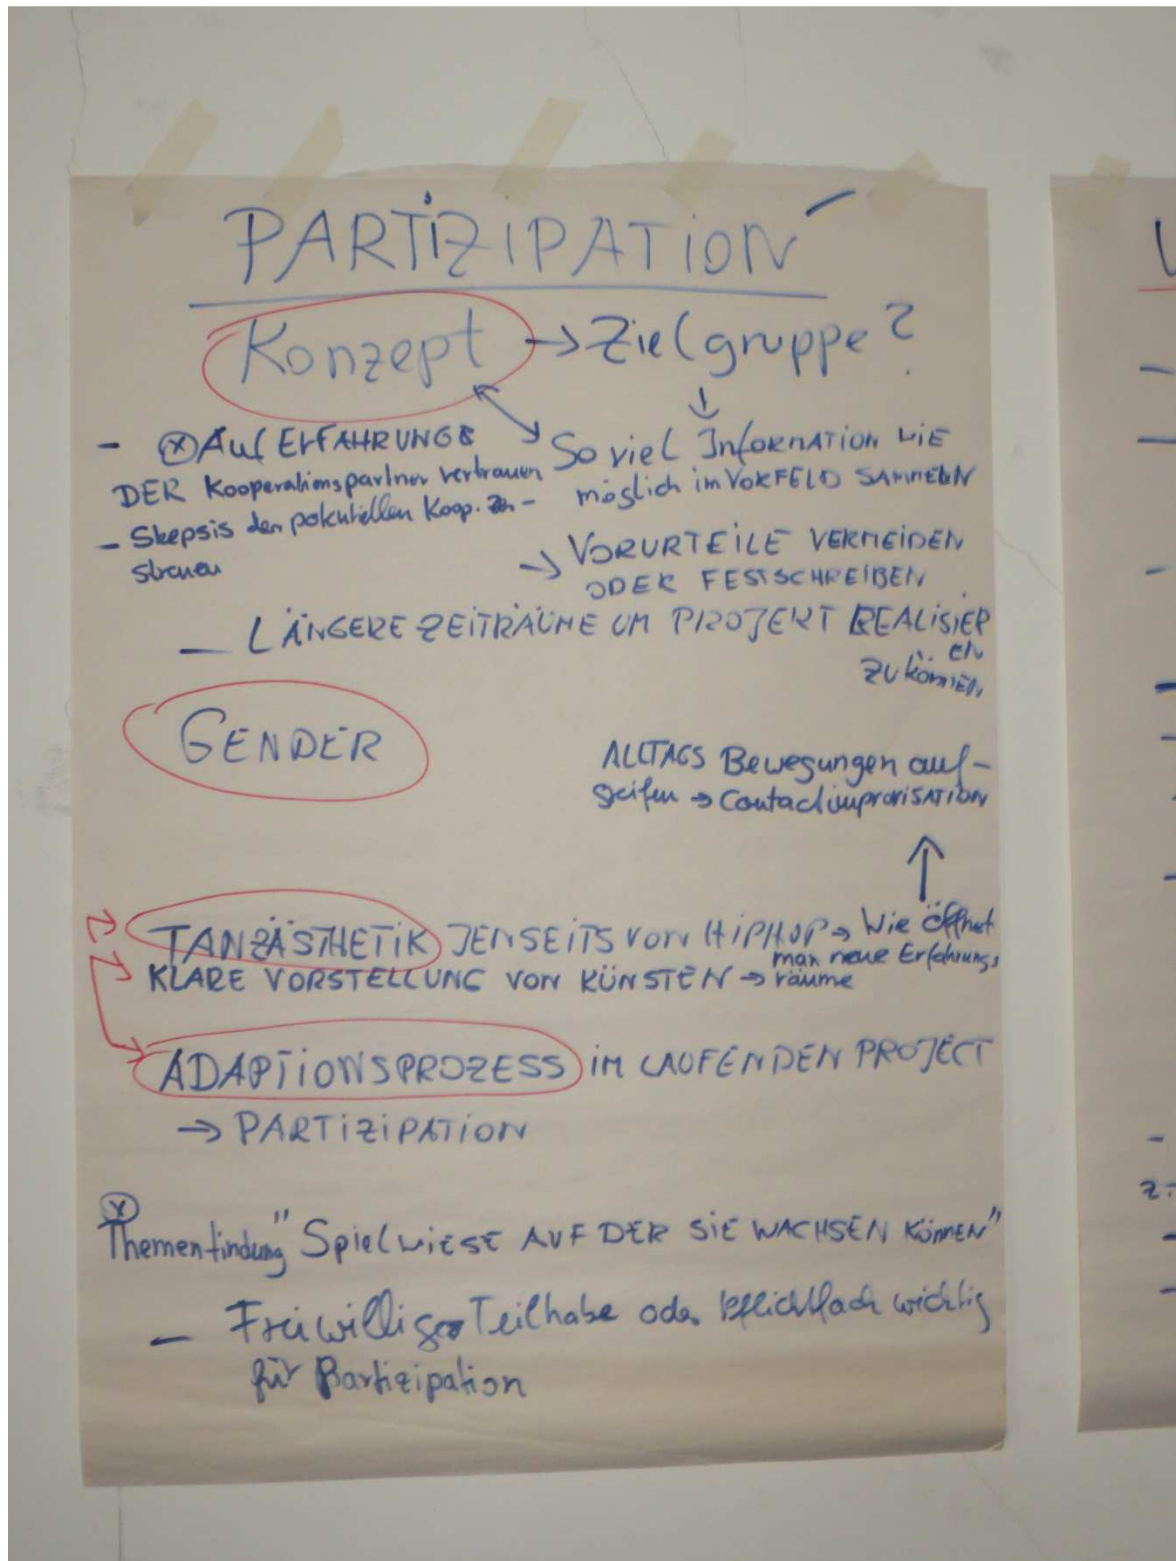 PARTIZIPATION
Konzept → Zielgruppe?
↓
- ⓧ Auf ERFAHRUNGE
DER Kooperationspartner vertrauen
- Skepsis der potentiellen Koop.
streuen
So viel INFORMATION WIE
möglich im VORFELD SAMMELN
→ VORURTEILE VERMEIDEN
ODER FESTSCHREIBEN
— LÄNGERE ZEITRÄUME UM PROJEKT REALISIER
EN
ZU KÖNNEN
GENDER
ALLTAGS Bewegungen auf-
greifen → ContactimprovisATION
↑
TANZÄSTHETIK JENSEITS VON HIPHOP → Wie öffnet
man neue Erfahrungs
KLARE VORSTELLUNG VON KÜNSTEN → räume
ADAPTIONSPROZESS IM LAUFENDEN PROJECT
→ PARTIZIPATION
ⓧ
Themenfindung "Spielwiese AUF DER SIE WACHSEN KÖNNEN"
— Freiwillige Teilhabe oder Pflichtfach wichtig
für Partizipation
z.